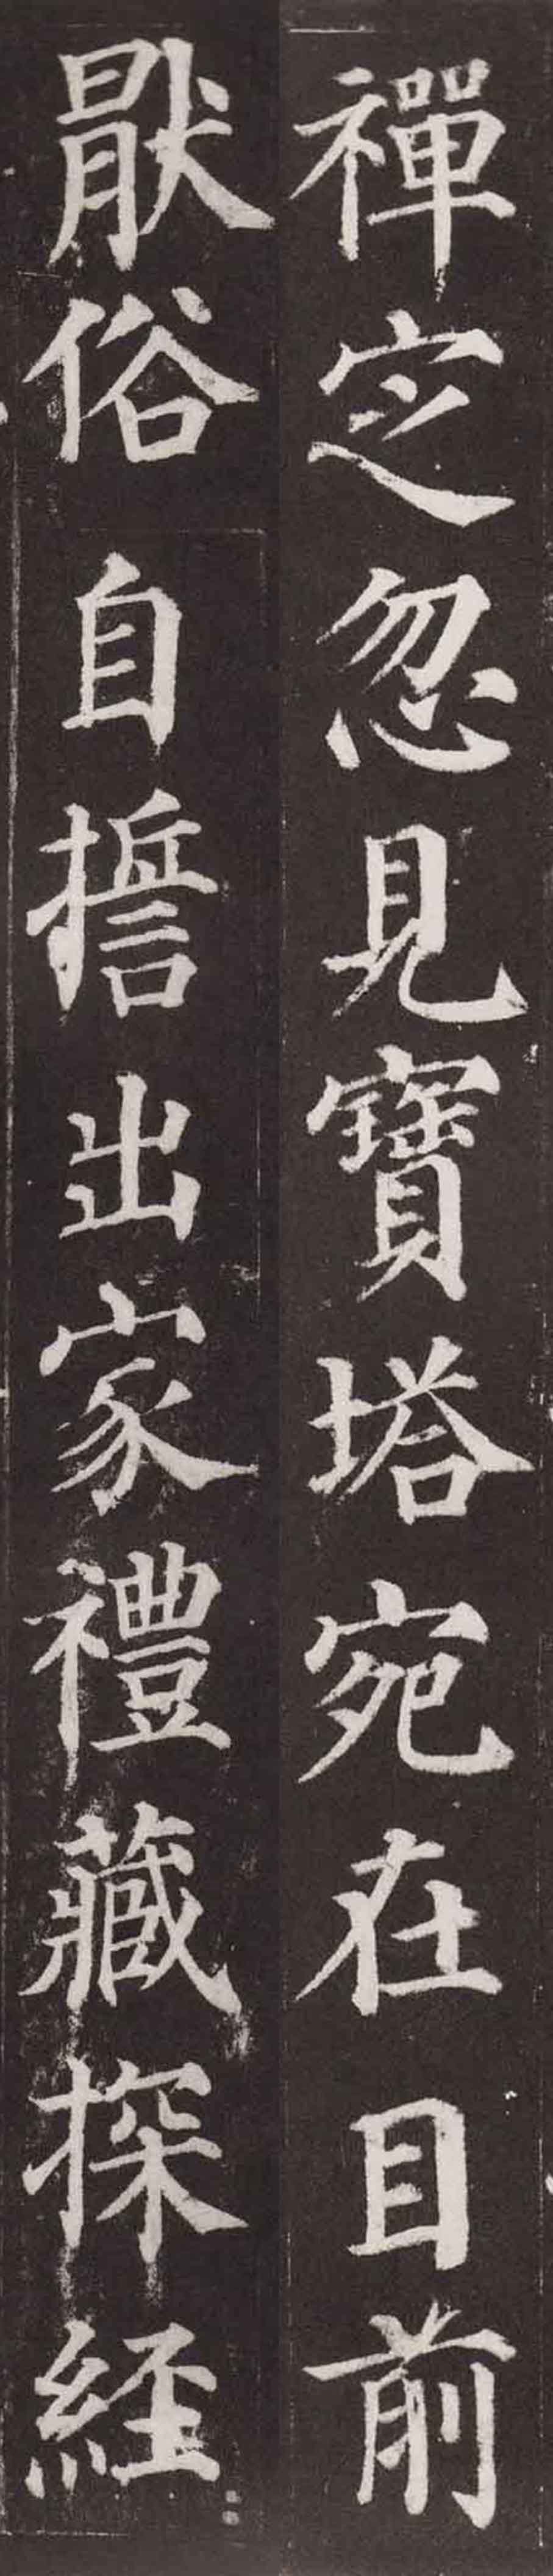 禪定忽見寶塔宛在目前
猒俗自誓出家禮藏探經